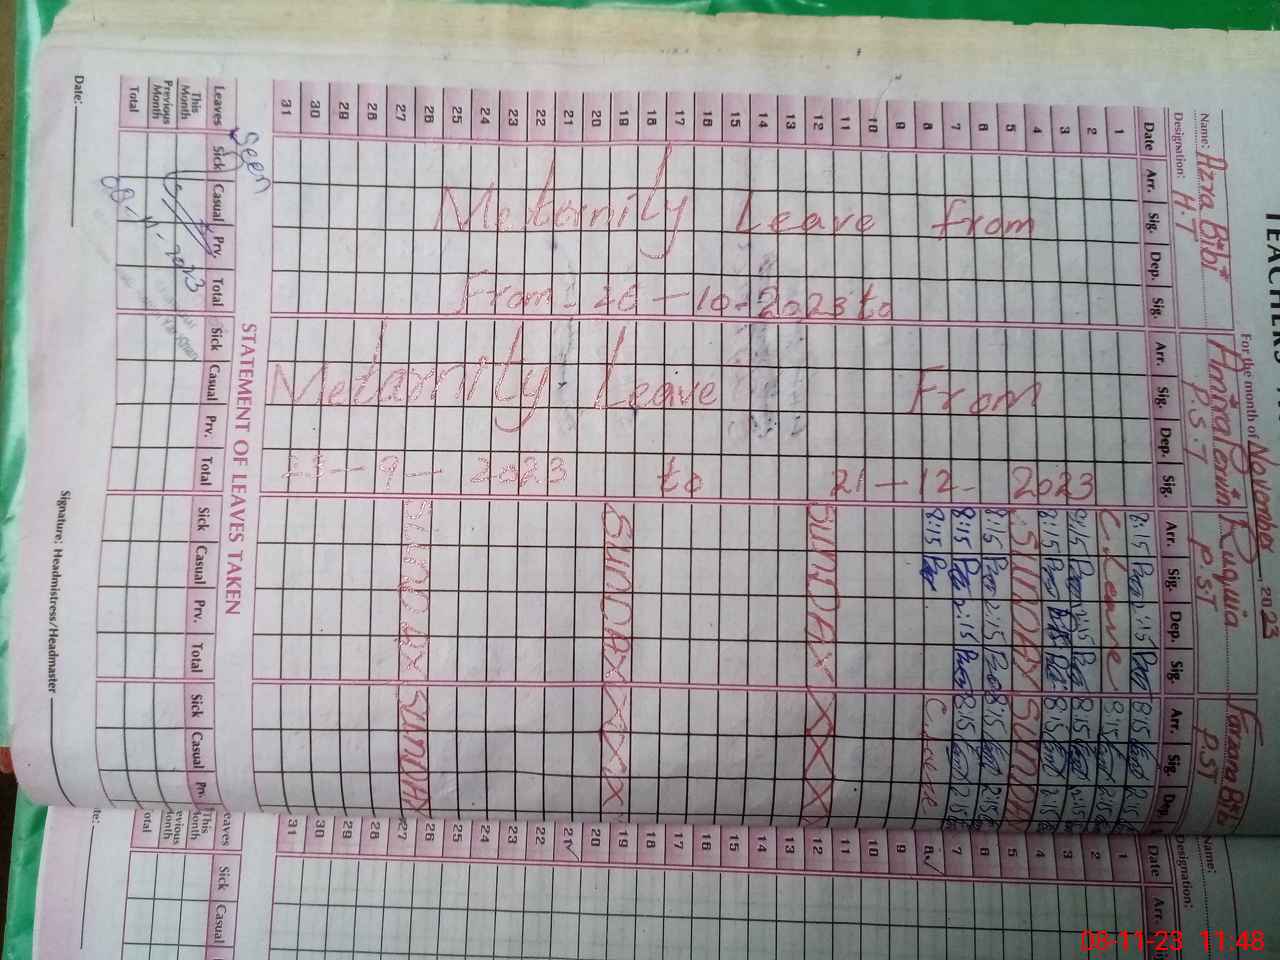 TEACHERS
For the month of November 2023
Name: Azra Bibi Amira Pervin Ruqqia Farzana Bibi
Designation: H.T P.S.T P.S.T P.ST
Date Arr. Sig. Dep. Sig. Arr. Sig. Dep. Sig. Arr. Sig. Dep. Sig. Arr. Sig. Dep.
1 8:15 2:15 8:15 2:15
2 C Leave 8:15 2:15
3 8:15 2:15 8:15 2:15
4 8:15 8:15 2:15
5 SUNDAY SUNDAY
6 8:15 2:15 8:15 2:15
7 8:15 2:15 8:15 2:15
8 8:15 C.Leave
9
10
11
12 SUNDAY XXX
13
14
15
16
17
18
19 SUNDAY XXXX
20
21
22
23
24
25
26
27 SUNDAY SUNDAY
28
29
30
31
Maternily Leave from
From - 26 - 10 - 2023 to
Meternity Leave From
9 - 2023 to 21 - 12 - 2023
STATEMENT OF LEAVES TAKEN
Seen
Leaves Sick Casual Prv. Total Sick Casual Prv. Total Sick Casual Prv. Total Sick Casual Prv.
This Month
Previous Month
Total
08-11-2023
Date:
Signature: Headmistress/Headmaster
Name:
Designation:
Date Arr.
1
2
3
4
5
6
7
8✓
9
10
11
12
13
14
15
16
17
18
19
20
21✓
22
23
24
25
26
27
28
29
30
31
Leaves Sick Casual
This Month
Previous Month
Total
08-11-23 11:48